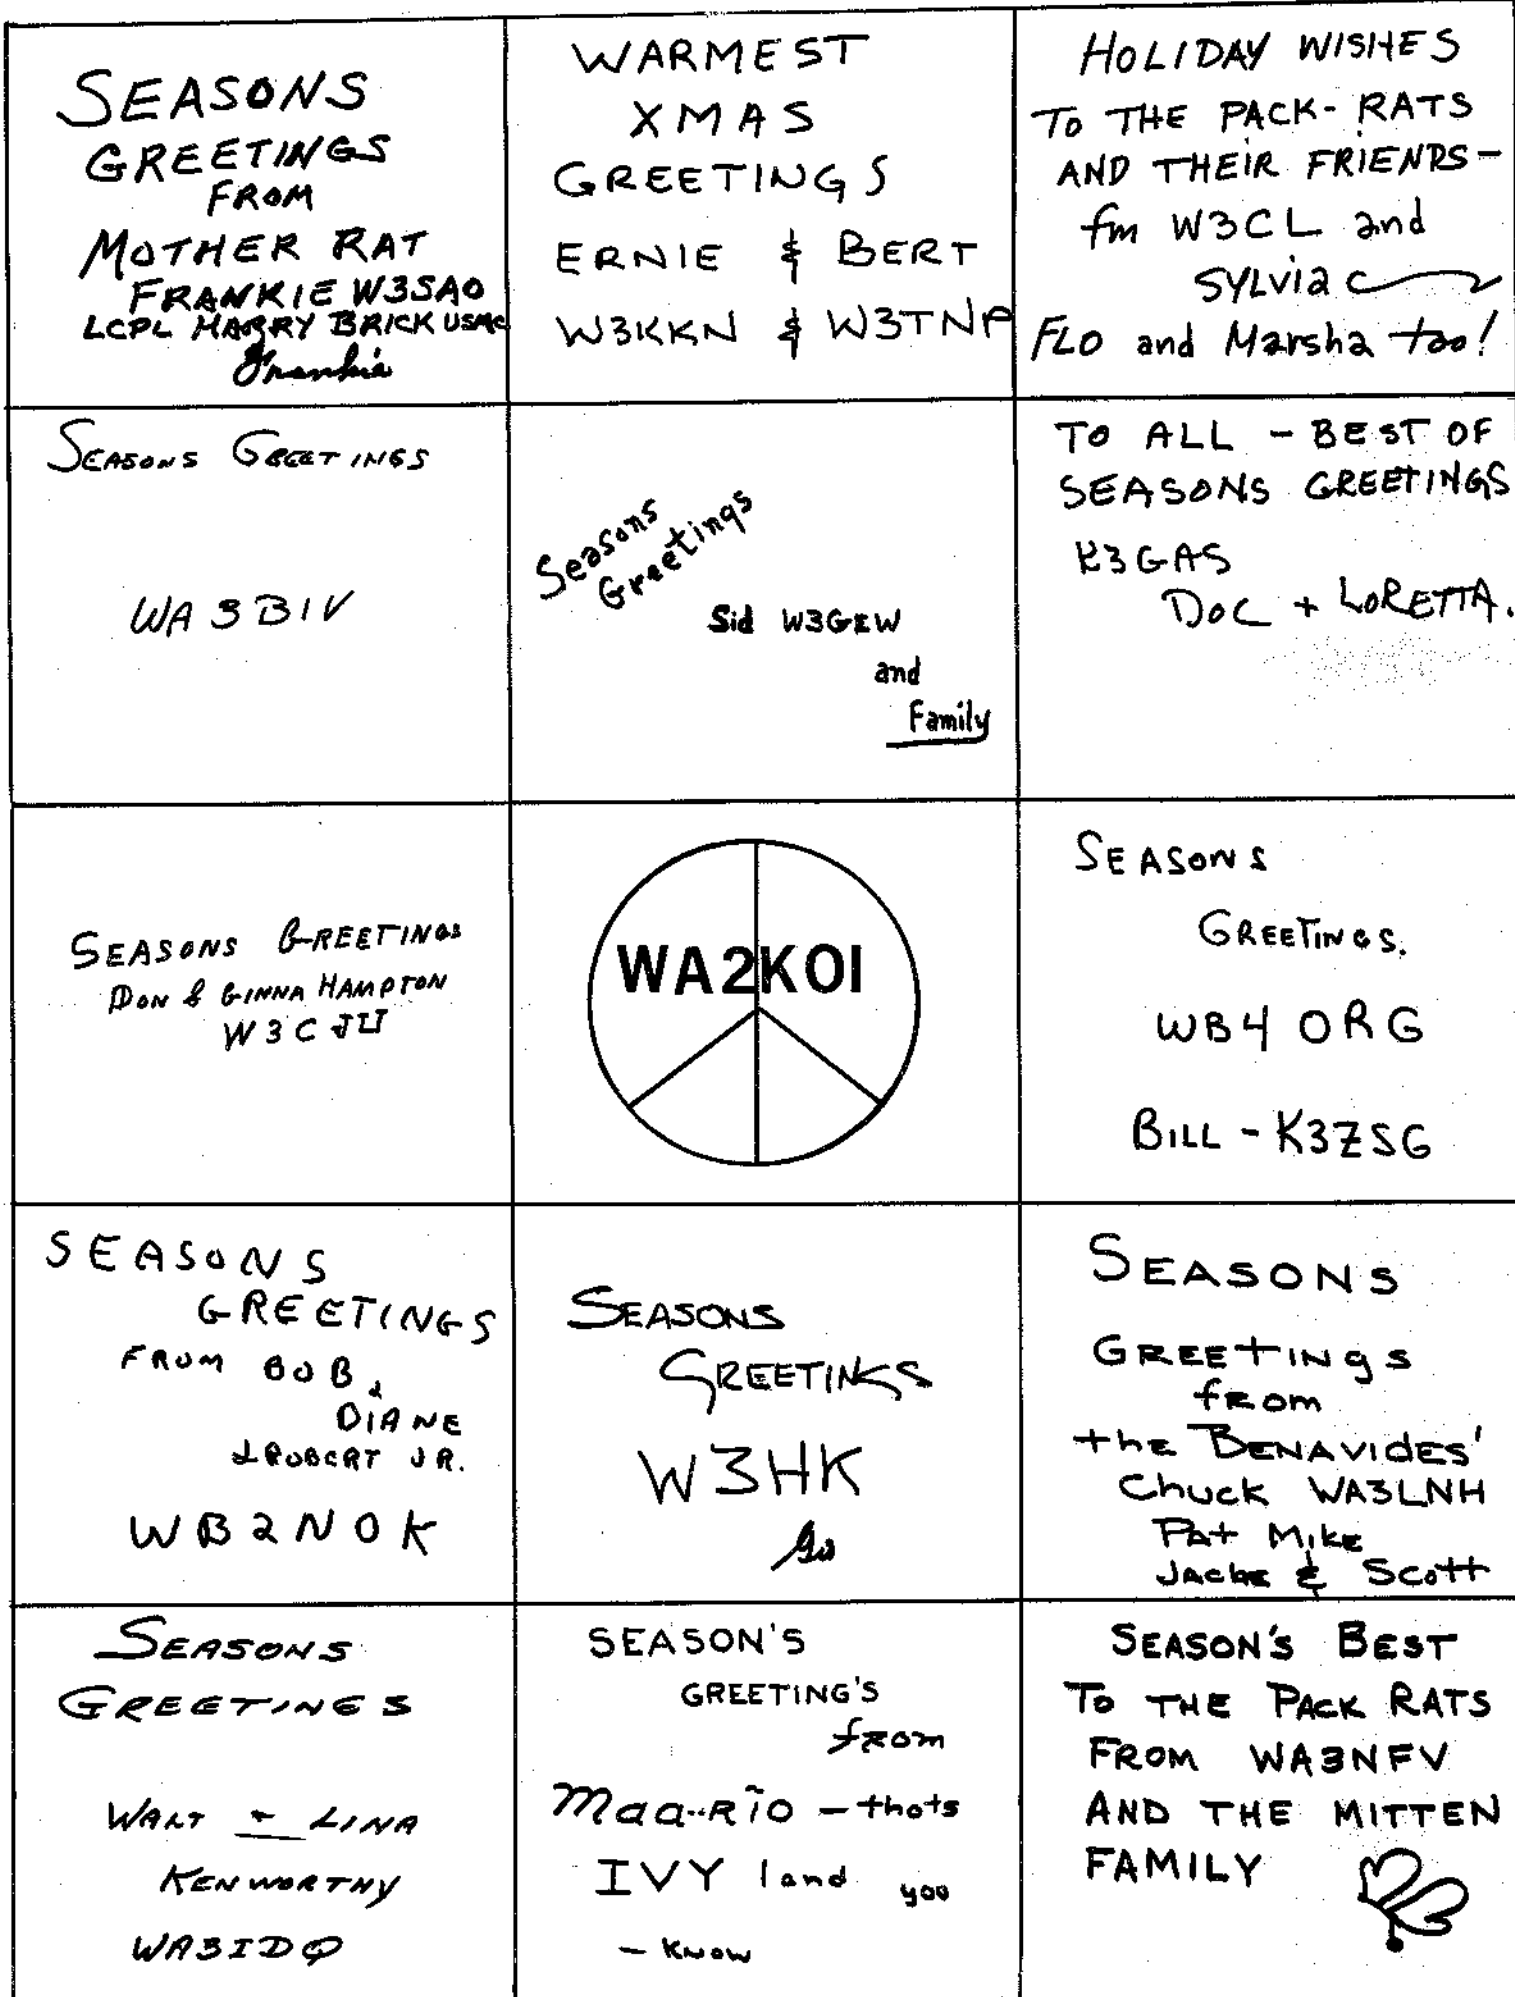 SEASONS
GREETINGS
FROM
MOTHER RAT
FRANKIE W3SAO
LCPL HARRY BRICK USMC
Frankie
WARMEST
XMAS
GREETINGS
ERNIE & BERT
W3KKN & W3TNP
HOLIDAY WISHES
TO THE PACK-RATS
AND THEIR FRIENDS-
fm W3CL and
SYLVIA C
FLO and Marsha too!
SEASONS GREETINGS
WA3BIV
Seasons
Greetings
Sid W3GEW
and
Family
TO ALL - BEST OF
SEASONS GREETINGS
K3GAS
DOC + LORETTA.
SEASONS GREETINGS
DON & GINNA HAMPTON
W3CJU
WA2KOI
SEASONS
GREETINGS.
WB4ORG
BILL - K3ZSG
SEASONS
GREETINGS
FROM BOB,
DIANE
& ROBERT JR.
WB2NOK
SEASONS
GREETINGS
W3HK
SEASONS
GREETINGS
from
the BENAVIDES'
Chuck WA3LNH
Pat Mike
& Scott
SEASONS
GREETINGS
WALT + LINA
KENWORTHY
WA3IDQ
SEASON'S
GREETING'S
from
Maa-RIO - thots
IVY land you
- KNOW
SEASON'S BEST
TO THE PACK RATS
FROM WA3NFV
AND THE MITTEN
FAMILY